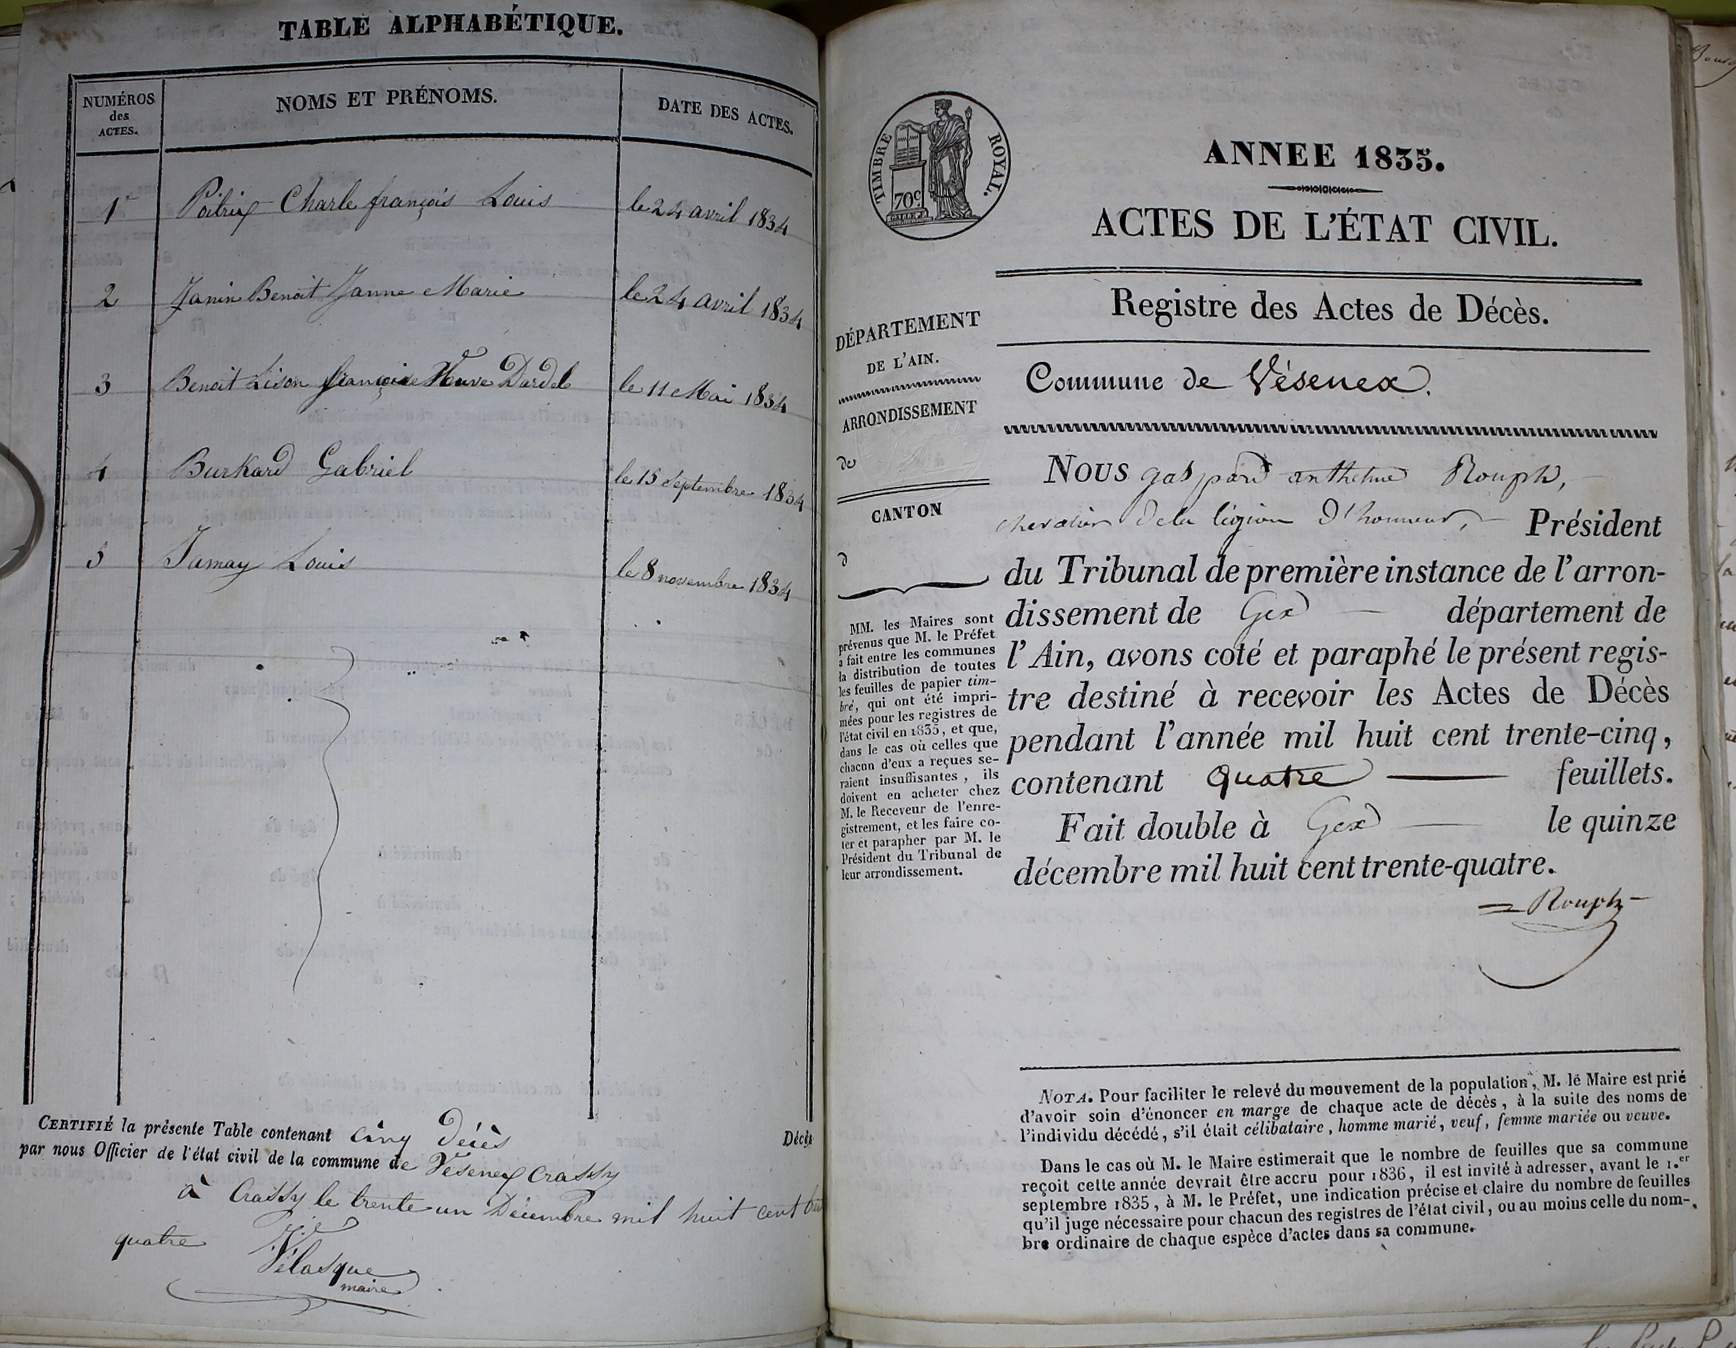 TABLE ALPHABÉTIQUE.
NUMÉROS
des
ACTES.
NOMS ET PRÉNOMS.
DATE DES ACTES.
1r Poitrix Charle françois Louis le 24 avril 1834
2 Janin Benoit Janne Marie le 24 avril 1834
3 Benoit Lison françoise Veuve Dardel le 11 Mai 1834
4 Burkard Gabriel le 15 Septembre 1834
5 Jamay Louis le 8 novembre 1834
CERTIFIÉ la présente Table contenant cinq Décès Décès
par nous Officier de l'état civil de la commune de Vésenex Crassy
à Crassy le trente un Décembre mil huit cent
quatre
Vélasque
maire
TIMBRE ROYAL.
70c
ANNEE 1835.
ACTES DE L'ÉTAT CIVIL.
Registre des Actes de Décès.
DÉPARTEMENT
DE L'AIN.
ARRONDISSEMENT
de
CANTON
d
MM. les Maires sont
prévenus que M. le Préfet
a fait entre les communes
la distribution de toutes
les feuilles de papier tim-
bré, qui ont été impri-
mées pour les registres de
l'état civil en 1835, et que,
dans le cas où celles que
chacun d'eux a reçues se-
raient insuffisantes, ils
doivent en acheter chez
M. le Receveur de l'enre-
gistrement, et les faire co-
ter et parapher par M. le
Président du Tribunal de
leur arrondissement.
Commune de Vésenex.
Nous gaspard anthelme Rouph,
chevalier de la légion d'honneur, Président
du Tribunal de première instance de l'arron-
dissement de Gex département de
l'Ain, avons coté et paraphé le présent regis-
tre destiné à recevoir les Actes de Décès
pendant l'année mil huit cent trente-cinq,
contenant quatre feuillets.
Fait double à Gex le quinze
décembre mil huit cent trente-quatre.
Rouph
NOTA. Pour faciliter le relevé du mouvement de la population, M. le Maire est prié
d'avoir soin d'énoncer en marge de chaque acte de décès, à la suite des noms de
l'individu décédé, s'il était célibataire, homme marié, veuf, femme mariée ou veuve.
Dans le cas où M. le Maire estimerait que le nombre de feuilles que sa commune
reçoit cette année devrait être accru pour 1836, il est invité à adresser, avant le 1.er
septembre 1835, à M. le Préfet, une indication précise et claire du nombre de feuilles
qu'il juge nécessaire pour chacun des registres de l'état civil, ou au moins celle du nom-
bre ordinaire de chaque espèce d'actes dans sa commune.